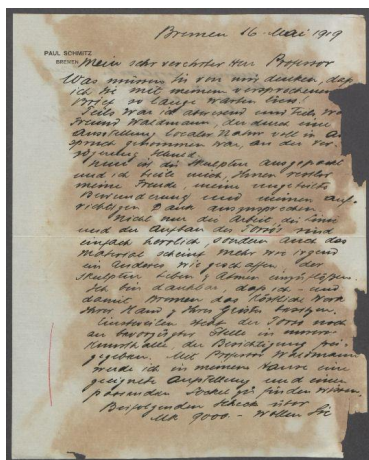 Bremen 16. Mai 1919
PAUL SCHMITZ
BREMEN
Mein sehr verehrter Herr Professor
Was müssen Sie von mir denken, daß
ich Sie mit meinem versprochenen
Brief so lange warten liess!
Teils war ich abwesend und teils war
Freund Waldmann, der durch eine
Ausstellung localer Natur voll in An
spruch genommen war, an der Ver
zögerung Schuld.
Nun ist die Skulptur ausgepackt
und ich beeile mich, Ihnen
meine Freude, meine ungeteilte
Bewunderung und meinen auf
richtigen Dank auszusprechen.
Nicht nur die Arbeit, die Linie
und der Aufbau des Torso sind
einfach herrlich, sondern auch das
Material scheint mehr wie irgend
ein Anderes wie geschaffen, der
Skulptur Leben & Atmen einzuflößen.
Ich bin dankbar, daß ich - und
damit Bremen das köstliche Werk
Ihrer Hand & Ihres Geistes besitzen.
Einstweilen steht der Torso noch
an bevorzugter Stelle in unserer
Kunsthalle der Besichtigung frei
gegeben. Mit Professor Waldmann
werde ich in meinem Hause eine
geeignete Aufstellung und einen
passenden Sockel zu finden wissen.
Beifolgenden Scheck über
Mk 9000.- wollen Sie